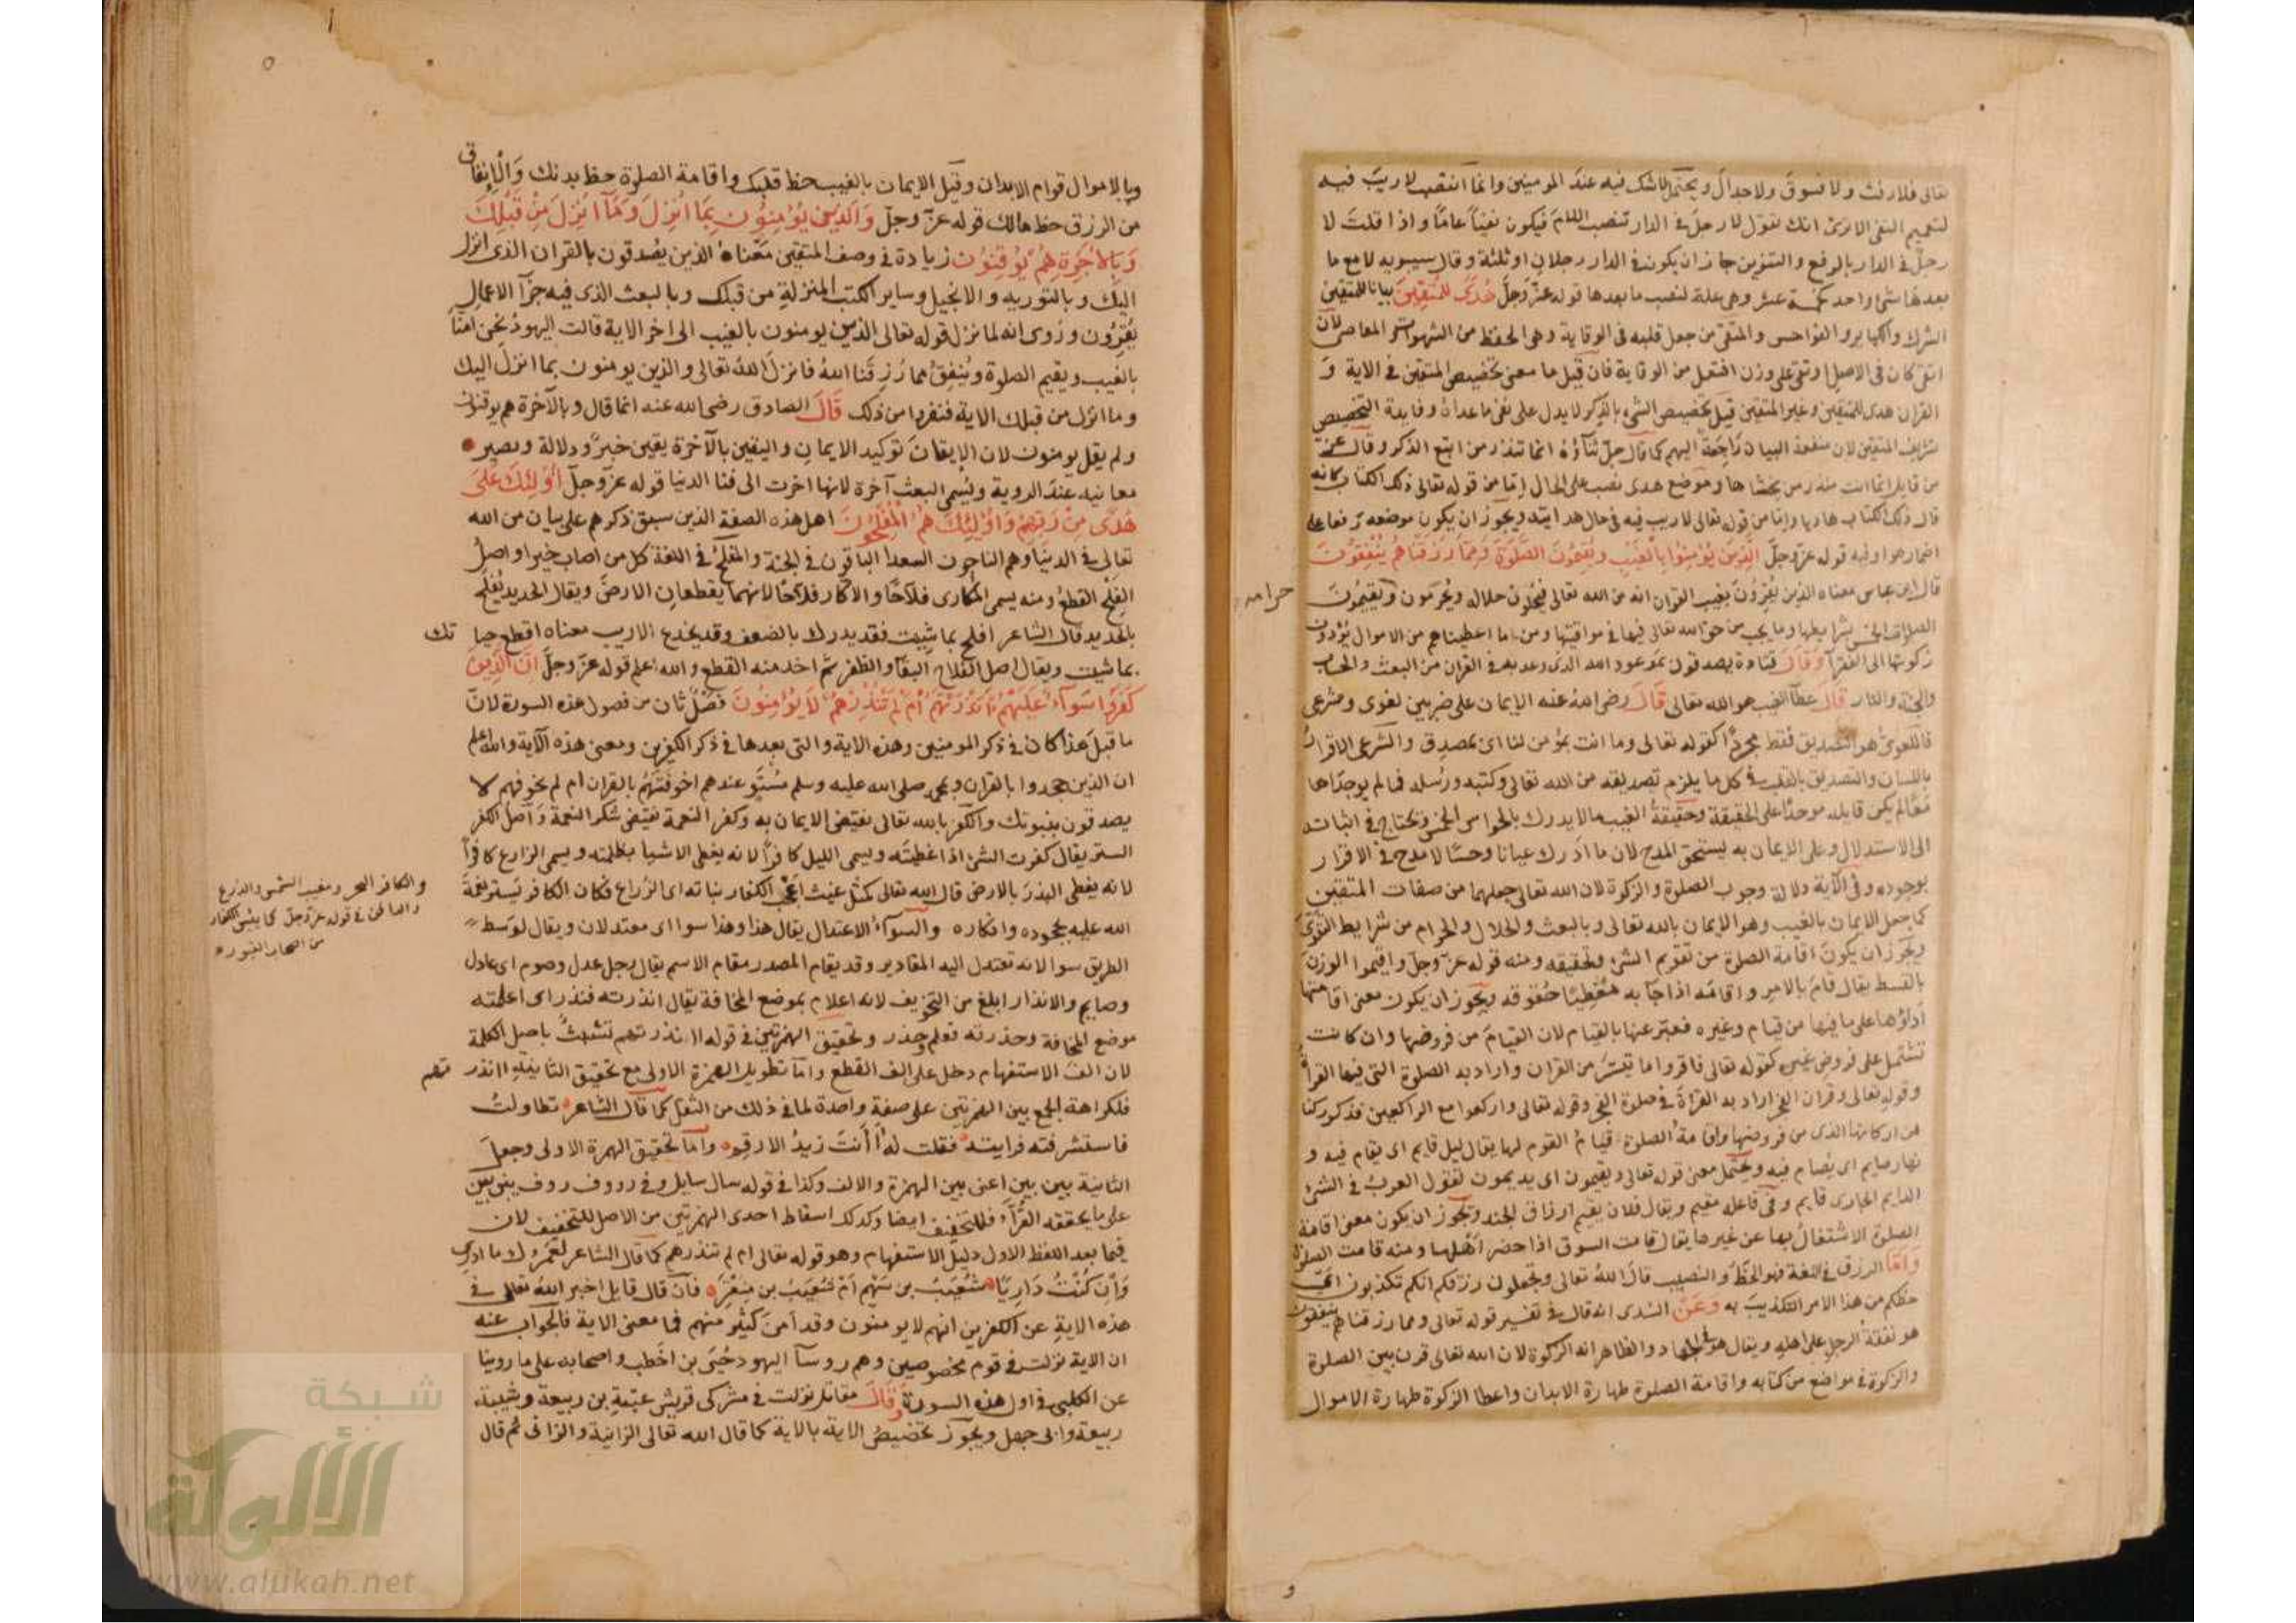 تعالى فلا رفث ولا فسوق ولا جدال ويحتمل لا شك فيه عند المومنين وانما انتصب لا ريب فيه
لتعميم النفي الا ترى انك تقول لا رجل في الدار تنصب اللام فيكون نفيا عاما واذا قلت لا
رجل في الدار بالرفع والتنوين جاز ان يكون في الدار رجلان او ثلثة وقال سيبويه لا مع ما
بعدها شى واحد كخمسة عشر وهي علة لنصب ما بعدها قوله عز وجل هدى للمتقين بيانا للمتقين
الشرك والكباير والفواحش والمتقى من جعل قلبه في الوقاية وهى الحفظ من الشهوات والمعاصى لان
اتقى كان في الاصل اوتقى على وزن افتعل من الوقاية فان قيل ما معنى تخصيص المتقين في الاية و
القران هدى للمتقين وغير المتقين قيل تخصيص الشى بالذكر لا يدل على نفى ما عداه وفايدة التخصيص
تشريف المتقين لان منفعة البيان راجعة اليهم كما قال جل ثناؤه انما تنذر من اتبع الذكر وقال عز
من قايل انما انت منذر من يخشاها وموضع هدى نصب على الحال اما من قوله تعالى ذلك الكتاب كانه
قال ذلك الكتاب هاديا واما من قوله تعالى لا ريب فيه في حال هدايته ويجوز ان يكون موضعه رفعا على
اضمار هو او فيه قوله عز وجل الذين يؤمنوا بالغيب ويقيمون الصلوة ومما رزقناهم ينفقون
قال ابن عباس معناه الذين يقرون بغيب القران انه من الله تعالى فيحلون حلاله ويحرمون ويقيمون
حرامه
الصلوات الخمس بشرايطها وما يجب من حق الله تعالى فيها في مواقيتها ومن ما اعطيناهم من الاموال يؤدون
زكوتها الى الفقرا وقال قتادة يصدقون بموعود الله الذى وعد به في القران من البعث والحساب
والجنة والنار قال عطا الغيب هو الله تعالى قال رضى الله عنه الايمان على ضربين لغوى وشرعى
فاللغوى هو التصديق فقط مجردا كقوله تعالى وما انت بمؤمن لنا اى بمصدق والشرعى الاقرار
باللسان والتصديق بالقلب في كل ما يلزم تصديقه من الله تعالى وكتبه ورسله فما لم يوجداها
معا لم يكن قايله موحدا على الحقيقة وحقيقة الغيب ما لا يدرك بالحواس الخمس وتحتاج في اثباته
الى الاستدلال وعلى الايمان به يستحق المدح لان ما ادرك عيانا وحسا لا مدح في الاقرار
بوجوده وفي الآية دلالة وجوب الصلوة والزكوة لان الله تعالى جعلهما من صفات المتقين
كما جعل الايمان بالغيب وهو الايمان بالله تعالى وبالبعث والحلال والحرام من شرايط التقوى
ويجوز ان يكون اقامة الصلوة من تقويم الشى وتحقيقه ومنه قوله عز وجل واقيموا الوزن
بالقسط يقال قام بالامر واقامه اذا جا به معطيا حقوقه ويجوز ان يكون معنى اقامتها
اداؤها على ما فيها من قيام وغيره فعبر عنها بالقيام لان القيام من فروضها وان كانت
تشتمل على فروض غيره كقوله تعالى فاقروا ما تيسر من القران واراد به الصلوة التى فيها القراة
وقوله تعالى وقران الفجر اراد به القراة في صلوة الفجر وقوله تعالى واركعوا مع الراكعين فذكر ركنا
من اركانها الذى من فروضها واقامة الصلوة قيام القوم لها يقال ليل قايم اى يقام فيه و
نهار صايم اى يصام فيه ويحتمل معنى قوله تعالى ويقيمون اى يديمون لقول العرب في الشى
الدايم الجارى قايم وفي فاعله مقيم ويقال فلان يقيم ارزاق الجند ويجوز ان يكون معنى اقامة
الصلوة الاشتغال بها عن غيرها يقال قامت السوق اذا حضر اهلها ومنه قامت الصلوة
واما الرزق في اللغة فهو الحظ والنصيب قال الله تعالى وتجعلون رزقكم انكم تكذبون اى
حظكم من هذا الامر التكذيب به وعن السدى انه قال في تفسير قوله تعالى ومما رزقناهم ينفقون
هو نفقة الرجل على اهله ويقال هو في الجهاد والظاهر انه الزكوة لان الله تعالى قرن بين الصلوة
والزكوة في مواضع من كتابه واقامة الصلوة طهارة الابدان واعطا الزكوة طهارة الاموال
و
٥
وبالاموال قوام الابدان وقيل الايمان بالغيب حظ قلبك واقامة الصلوة حظ بدنك والانفاق
من الرزق حظ مالك قوله عز وجل والذين يؤمنون بما انزل وما انزل من قبلك
وبالاخرة هم يوقنون زيادة في وصف المتقين معناه الذين يصدقون بالقران الذى انزل
اليك وبالتوريه والانجيل وساير الكتب المنزلة من قبلك وبالبعث الذى فيه جزآ الاعمال
يقرون وروى انه لما نزل قوله تعالى الذين يومنون بالغيب الى اخر الاية قالت اليهود نحن امنا
بالغيب ويقيم الصلوة وينفق مما رزقنا الله فانزل الله تعالى والذين يومنون بما انزل اليك
وما انزل من قبلك الاية فنفروا من ذلك قال الصادق رضى الله عنه انما قال وبالآخرة هم يوقنون
ولم يقل يومنون لان الايقان توكيد الايمان واليقين بالآخرة يقين خبر ودلالة ويصير
معاينه عند الروية وسمى البعث آخرة لانها اخرت الى فنا الدنيا قوله عز وجل اولئك على
هدى من ربهم واوليك هم المفلحون اهل هذه الصفة الذين سبق ذكرهم على بيان من الله
تعالى في الدنيا وهم الناجون السعدا الباقون في الجنة والمفلح في اللغة كل من اصاب خيرا واصل
الفلح القطع ومنه يسمى المكارى فلاحا والاكار فلاحا لانهما يقطعان الارض ويقال الحديد يفلح
بالحديد قال الشاعر افلح بما شيت فقد يدرك بالضعف وقد يخدع الاريب معناه اقطع حيا تك
بما شيت ويقال اصل الفلاح البقا والظفر ثم اخذ منه القطع والله اعلم قوله عز وجل ان الذين
كفروا سوآء عليهم ءانذرتهم ام لم تنذرهم لا يؤمنون فصل ثان من فصول هذه السورة لان
ما قبل هذا كان في ذكر المومنين وهذه الاية والتى بعدها في ذكر الكفرين ومعنى هذه الآية والله اعلم
ان الذين جحدوا بالقران وبمحمد صلى الله عليه وسلم مستو عندهم اخوفتهم بالقران ام لم تخوفهم لا
يصدقون بنبوتك والكفر بالله تعالى نقيض الايمان به وكفر النعمة نقيض شكر النعمة واصل الكفر
الستر يقال كفرت الشى اذا غطيته ويسمى الليل كافرا لانه يغطى الاشيا بظلمته ويسمى الزارع كافرا
لانه يغطى البذر بالارض قال الله تعالى كمثل غيث اعجب الكفار نباته اى الزراع فكان الكافر يستر نعمة
والكافر البحر ومغيب الشمس والدرع
في قوله عز وجل كما يئس الكفار
من اصحاب القبور
الله عليه بجحوده وانكاره والسوآء الاعتدال يقال هذا وهذا سوا اى معتدلان ويقال لوسط
الطريق سوا لانه تعتدل اليه المقادير وقد يقام المصدر مقام الاسم يقال رجل عدل وصوم اى عادل
وصايم والانذار ابلغ من التخويف لانه اعلام بموضع المخافة يقال انذرته فنذر اى اعلمته
موضع المخافة وحذرته فعلم وحذر وتحقيق الهمزتين في قوله اانذرتهم تشبث باصل الكلمة
لان الف الاستفهام دخل على الف القطع واما تطويل الهمزة الاولى مع تحقيق الثانية اانذر تهم
فلكراهة الجمع بين الهمزتين على صفة واحدة لما في ذلك من الثقل كما قال الشاعر تطاولت
فاستشرفته فرايته فقلت له أأنت زيد الارقم واما تحقيق الهمزة الاولى وجعل
الثانية بين بين اعنى بين الهمزة والالف وكذا في قوله سال سايل وفي رووف روف يبنى بين
على ما يحققه القرآء فللتخفيف ايضا وكذلك اسقاط احدى الهمزتين من الاصل للتخفيف لان
فيما بعد اللفظ الاول دليل الاستفهام وهو قوله تعالى ام لم تنذرهم كما قال الشاعر لعمرك ما ادرى
وان كنت داريا شعيب بن سهم ام شعيب بن منقر فان قال قايل اخبر الله تعالى في
هذه الاية عن الكفرين انهم لا يومنون وقد امن كثير منهم فما معنى الاية فالجواب عنه
ان الاية نزلت في قوم مخصوصين وهم روسآ اليهود حيى بن اخطب واصحابه على ما روينا
عن الكلبى في اول هذه السورة وقال مقاتل نزلت في مشركى قريش عتبة بن ربيعة وشيبة
ربيعة وابى جهل ويجوز تخصيص الاية بالاية كما قال الله تعالى الزانية والزانى ثم قال
شبكة
الألوكة
www.alukah.net